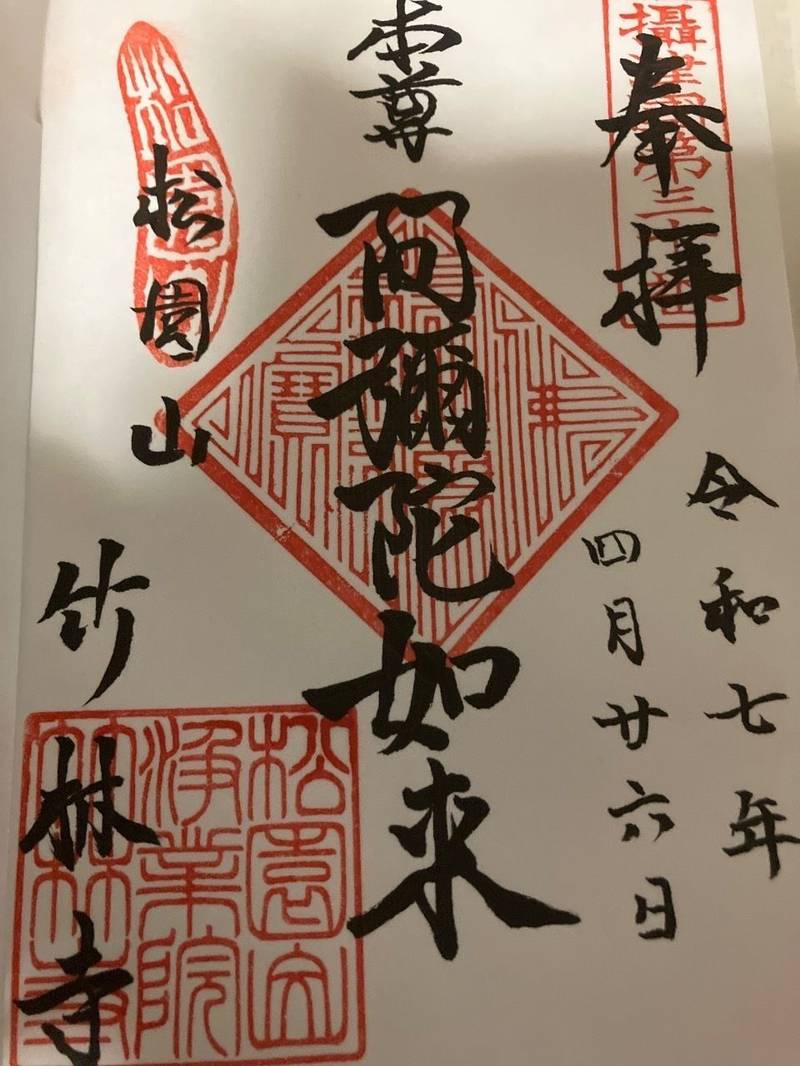 奉拝
攝津國第三
令和七年
四月廿六日
本尊
阿彌陀如来
寶
松園山
松園
竹林寺
松園山
浄業院
竹林寺